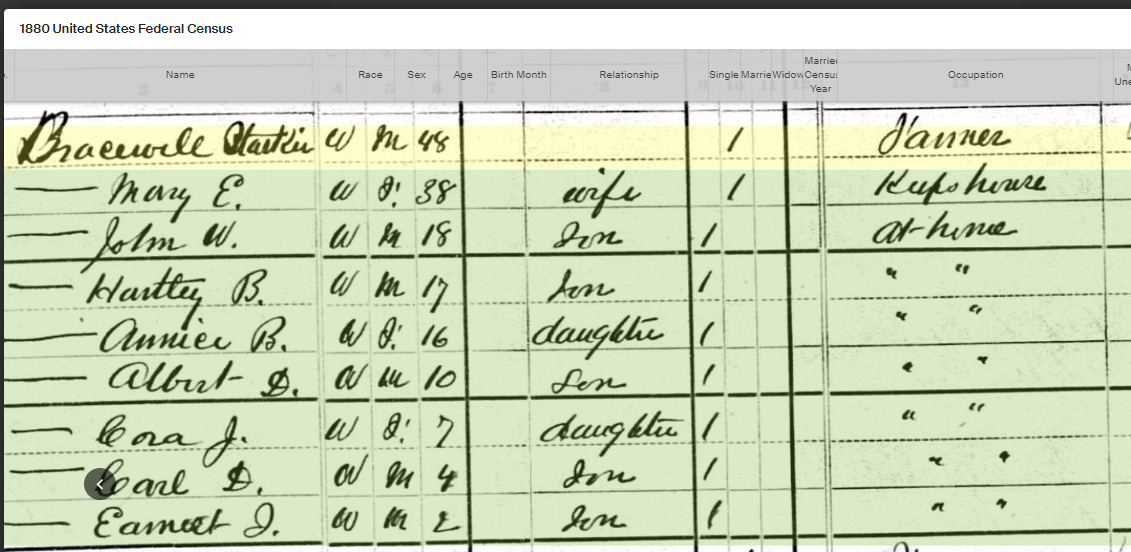 1880 United States Federal Census
Name Race Sex Age Birth Month Relationship Single Married Widow Married Census Year Occupation
3 4 5 6 8 9 10 11
Bracewell W M 48 1 Farmer
— Mary E. W F. 38 wife 1 Keeps house
— John W. W M 18 Son 1 at-home
— Hartley B. W M 17 Son 1 " "
— Annice B. W F. 16 daughter 1 " "
— Albert D. W M 10 Son 1 " "
— Cora J. W F. 7 daughter 1 " "
— Carl D. W M 4 Son 1 " "
— Earnest J. W M 2 Son 1 " "